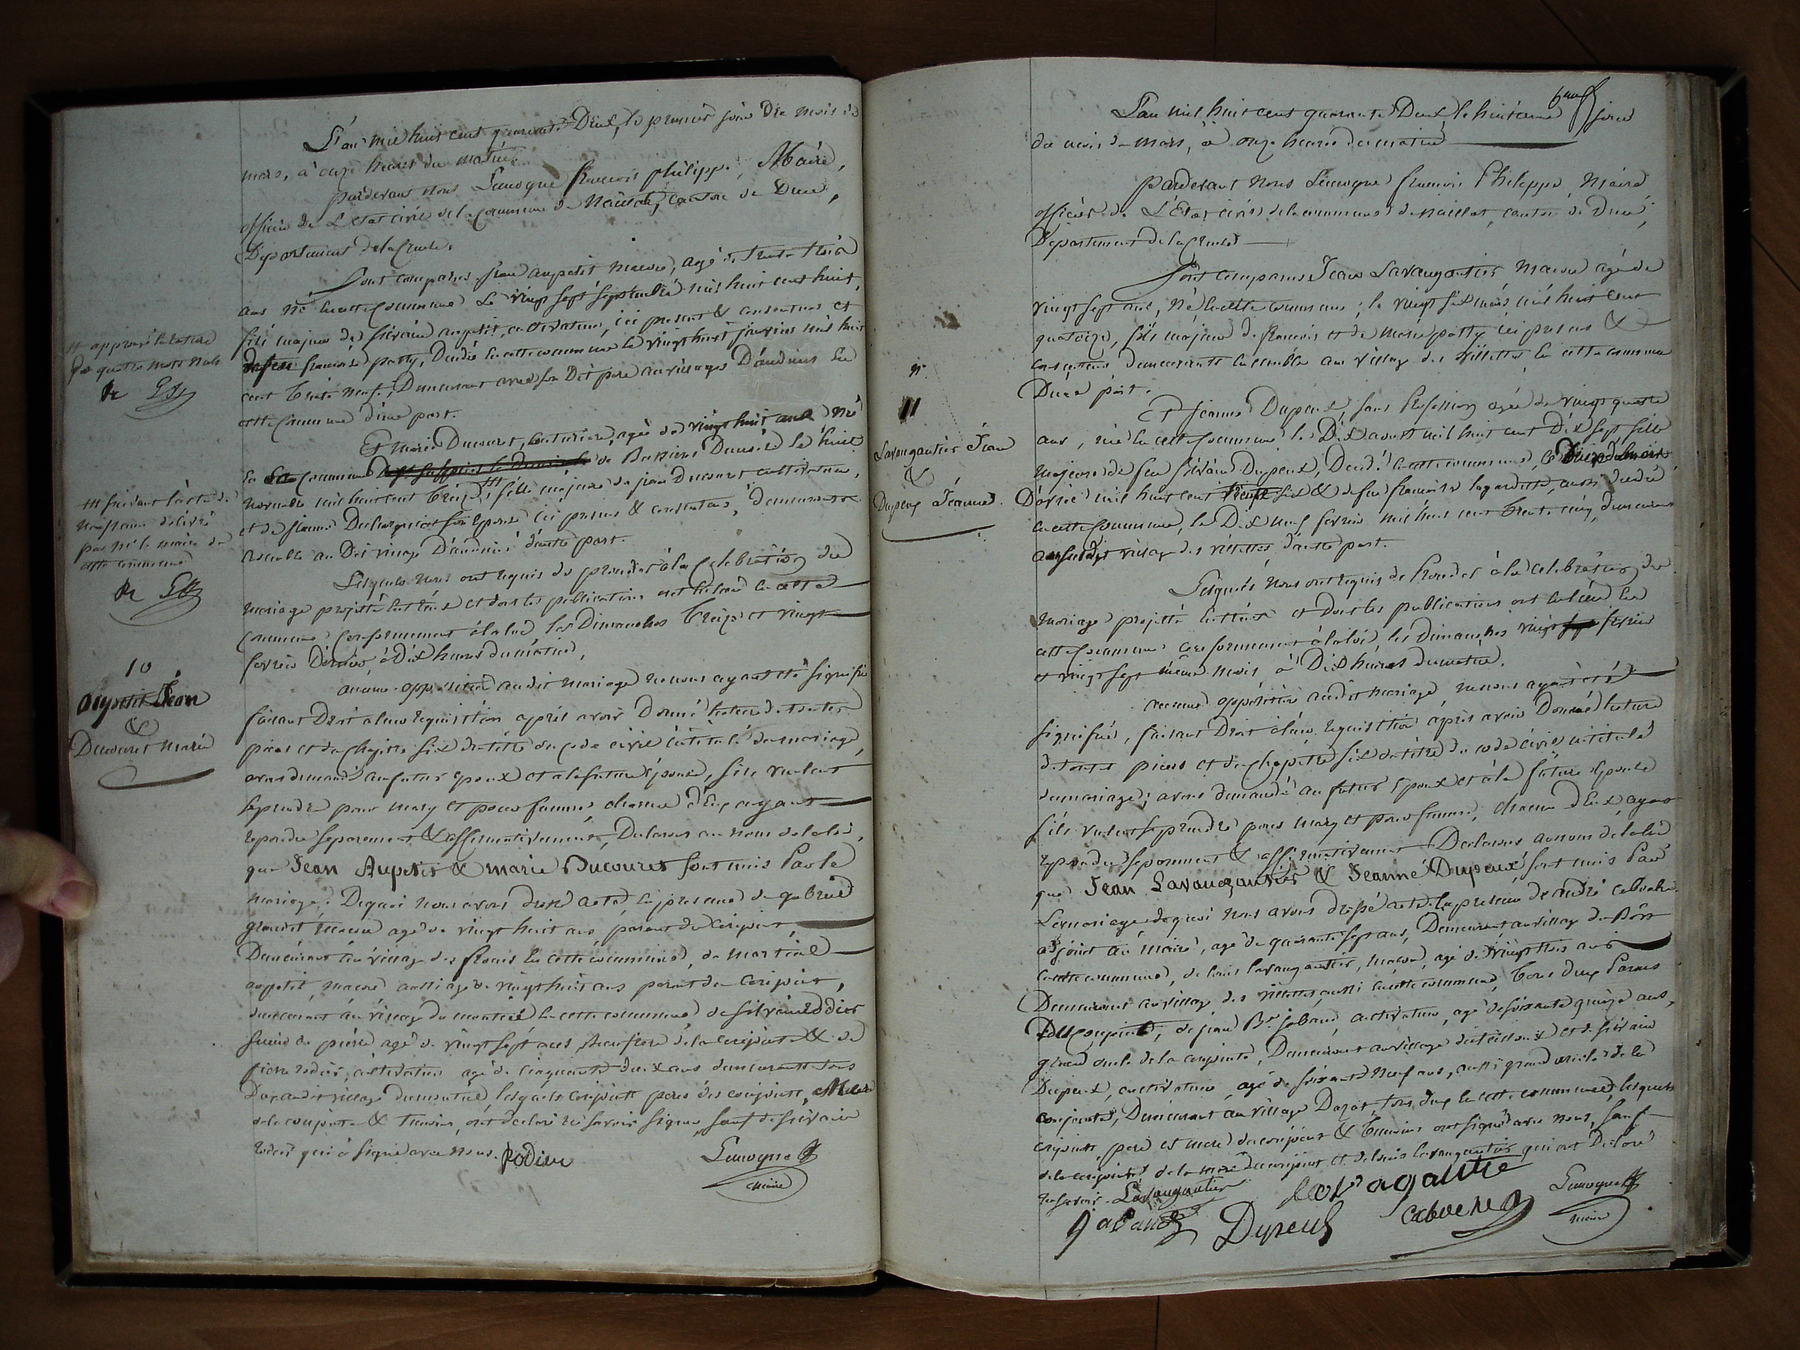 L'an mil huit cent quarante Deux, le premier jour Du mois de
mars, à onze heures du matin
pardevant nous Lemoyne françois philippe, Maire,
officier de L'Etat civil de la Commune de Naillat, canton de Dun,
Département de la Creuse.
Sont comparus jean aupetit macon, agé de trente trois
ans né en cette commune Le vingt sept septembre mil huit cent huit,
fils majeur de silvain aupetit, cultivateur, ici present & consentant et
de feu françoise patty, Décédée en cette commune le vingt huit janvier mil huit
cent trente neuf, Demeurant avec son Dit pere au village D'
cette Commune d'une part.
Et Marie Ducouret, couturière, agée de vingt huit ans Née
en commune de le huit
novembre mil huit cent treize fille majeure de jean ducouret cultivateur,
et de jeanne son épouse ici presens & consentans, demeurants
ensemble au Dit village d'autre part.
Lesquels nous ont requis de proceder à la Celebration du
mariage projetté entr'eux et dont les publications ont été lieu en cette
commune conformement à la loi, les Dimanches treize et vingt
fevrier Dernier à Dix heures du matin,
aucune opposition au dit mariage ne nous ayant été signifiée
faisant Droit à leur requisition après avoir Donné lecture de toutes
pièces et du chapitre six du titre du code civil intitulé du mariage,
avons demandé au futur epoux et à la future épouse, s'ils veulent
se prendre pour mary et pour femme, chacun d'Eux ayant
repondu separement & affirmativement, Declarons au nom de la loi,
que Jean Aupetit & marie Ducouret sont unis Par le
mariage. De quoi nous avons dressé acte en presence de gabriel
macon agé de vingt huit ans, parent du Conjoint,
Demeurant au village des en cette commune, de martial
aupetit, macon aussi agé de vingt huit ans parent du Conjoint,
demeurant au village du monteil en cette commune, de silvain rodier
de pierre agé de vingt sept ans de la conjointe & de
pierre rodier, cultivateur agé de cinquante deux ans demeurants tous
Deux au dit village du lesquels conjoints peres des conjoints, Mere
de la conjointe & temoins, ont déclaré ne savoir signer, sauf de silvain
rodier qui a signé avec nous.
Rodier
Lemoyne
maire
approuvé la rature
de quatre mots nuls
suivant l'acte de
notre
par Mr le maire de
cette commune
10
Aupetit Jean
&
Ducouret Marie
L'an mil huit cent quarante Deux, le huitieme jour
du mois de mars, à onze heures du matin
Pardevant Nous Lemoyne françois Philippe Maire
officier de L'Etat civil de la commune de Naillat, canton de Dun,
Département de la Creuse
Sont comparus Jean Lavaugautier Macon agé de
vingt sept ans, Né en cette commune, le vingt six mars mil huit cent
quatorze, fils majeur de françois et de Marie patty ici presens &
consentans demeurants ensemble au village des villettes en cette commune
D'une part.
Et Jeanne Dupeux, sans Profession agée de vingt quatre
ans, née en cette Commune le Dix aout mil huit cent Dix sept fille
majeure de feu silvain Dupeux, Décédé en cette commune, le
D'avril mil huit cent trente six & de feu françoise lagardette, aussi decedée
en cette commune, le Dix neuf fevrier mil huit cent trente cinq, demeurant
au susdit village des villettes d'autre part.
Lesquels Nous ont requis de Proceder à la celebration du
mariage projetté entr'eux et dont les publications ont eu lieu en
cette commune conformement à la loi, les Dimanches vingt fevrier
et vingt sept même mois à Dix heures du matin.
aucune opposition au dit mariage ne nous ayant été
signifiée, faisant Droit à leur requisition après avoir Donné lecture
de toutes pièces et du chapitre six du titre du code civil intitulé
du mariage, avons demandé au futur Epoux et à la future épouse
s'ils veulent se prendre pour mary et pour femme, chacun d'Eux ayant
repondu separement & affirmativement Declarons au nom de la loi
que Jean Lavaugautier & Jeanne Dupeux sont unis Par
Le mariage. de quoi nous avons dressé acte en presence de
adjoint au maire, agé de quarante sept ans, Demeurant au village de
en cette commune, de louis Lavaugautier, Macon, agé de vingt trois ans
Demeurant au village des villettes aussi en cette commune, tous deux Parens
Du Conjoint, de jean Bte jabaud, cultivateur, agé de soixante quinze ans,
grand oncle de la conjointe, Demeurant au village et de silvain
Dupeux, cultivateur, agé de soixante Neuf ans, aussi grand oncle de la
conjointe, Demeurant au village tous deux en cette commune, lesquels
conjoints, pere et mere du conjoint & temoins ont signé avec nous, sauf
de la conjointe de la mere du conjoint et de louis Lavaugautier qui ont Declaré
ne savoir.
Lavaugautier
Dupeux
Lemoyne
maire
n°
11
Lavaugautier Jean
&
Dupeux Jeanne.